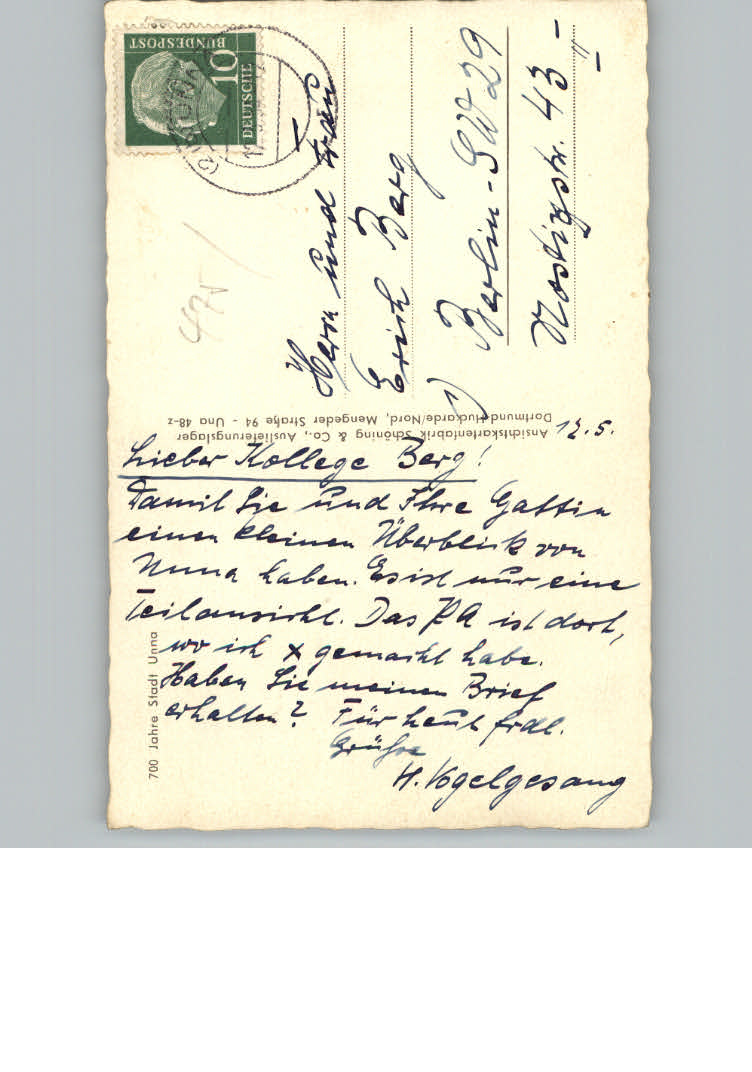 DEUTSCHE
BUNDESPOST
10
UNNA
475
Herrn und Frau
Erich Berg
1) Berlin-SW 29
Nostizstr. 43 II
Ansichtskartenfabrik Schöning & Co., Auslieferungslager
Dortmund-Huckarde/Nord, Mengeder Straße 94 - Una 48-z
12.5.
Lieber Kollege Berg!
Damit Sie und Ihre Gattin
einen kleinen Überblick von
Unna haben. Es ist nur eine
Teilansicht. Das PA ist dort,
wo ich x gemacht habe.
Haben Sie meinen Brief
erhalten? Für heut frdl.
Grüße
H. Vogelgesang
700 Jahre Stadt Unna